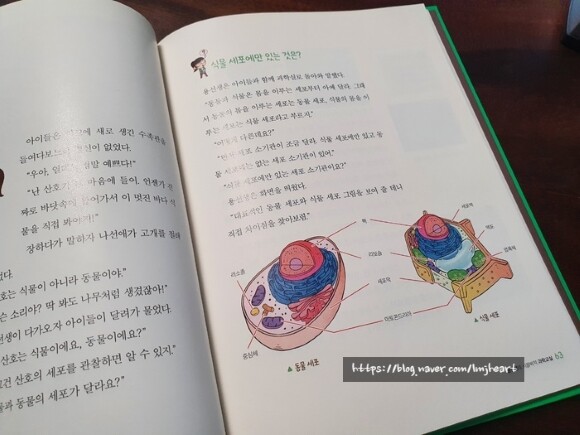 아이들은 새로 생긴 수족관을
들여다보느라 정신이 없었다.
"우아, 정말 예쁘다!"
"난 산호가 마음에 들어. 언젠가 진
짜로 바닷속에 들어가서 이 멋진 바다 식
물을 직접 봐야지!"
장하다가 말하자 나선애가 고개를
"산호는 식물이 아니라 동물이야."
소리야? 딱 봐도 나무처럼 생겼잖아!"
다가오자 아이들이 달려가 물었다.
산호는 식물이에요, 동물이에요?"
산호의 세포를 관찰하면 알 수 있지."
동물의 세포가 달라요?"
식물 세포에만 있는 것은?
용선생은 아이들과 함께 과학실로 돌아와 말했다.
"동물과 식물은 몸을 이루는 세포부터 아예 달라. 그래
서 동물의 몸을 이루는 세포는 동물 세포, 식물의 몸을 이
루는 세포는 식물 세포라고 부르지."
"어떻게 다른데요?"
세포 소기관이 조금 달라. 식물 세포에만 있고 동
물 세포에는 없는 세포 소기관이 있어."
"식물 세포에만 있는 세포 소기관이요?"
용선생은 화면을 띄웠다.
"대표적인 동물 세포와 식물 세포 그림을 보여 줄 테니
직접 차이점을 찾아보렴."
핵
리소좀
리보솜
세포막
미토콘드리아
중심체
세포벽
액포
엽록체
▲ 동물 세포
▲ 식물 세포
과학교실 63
https://blog.naver.com/lmjheart